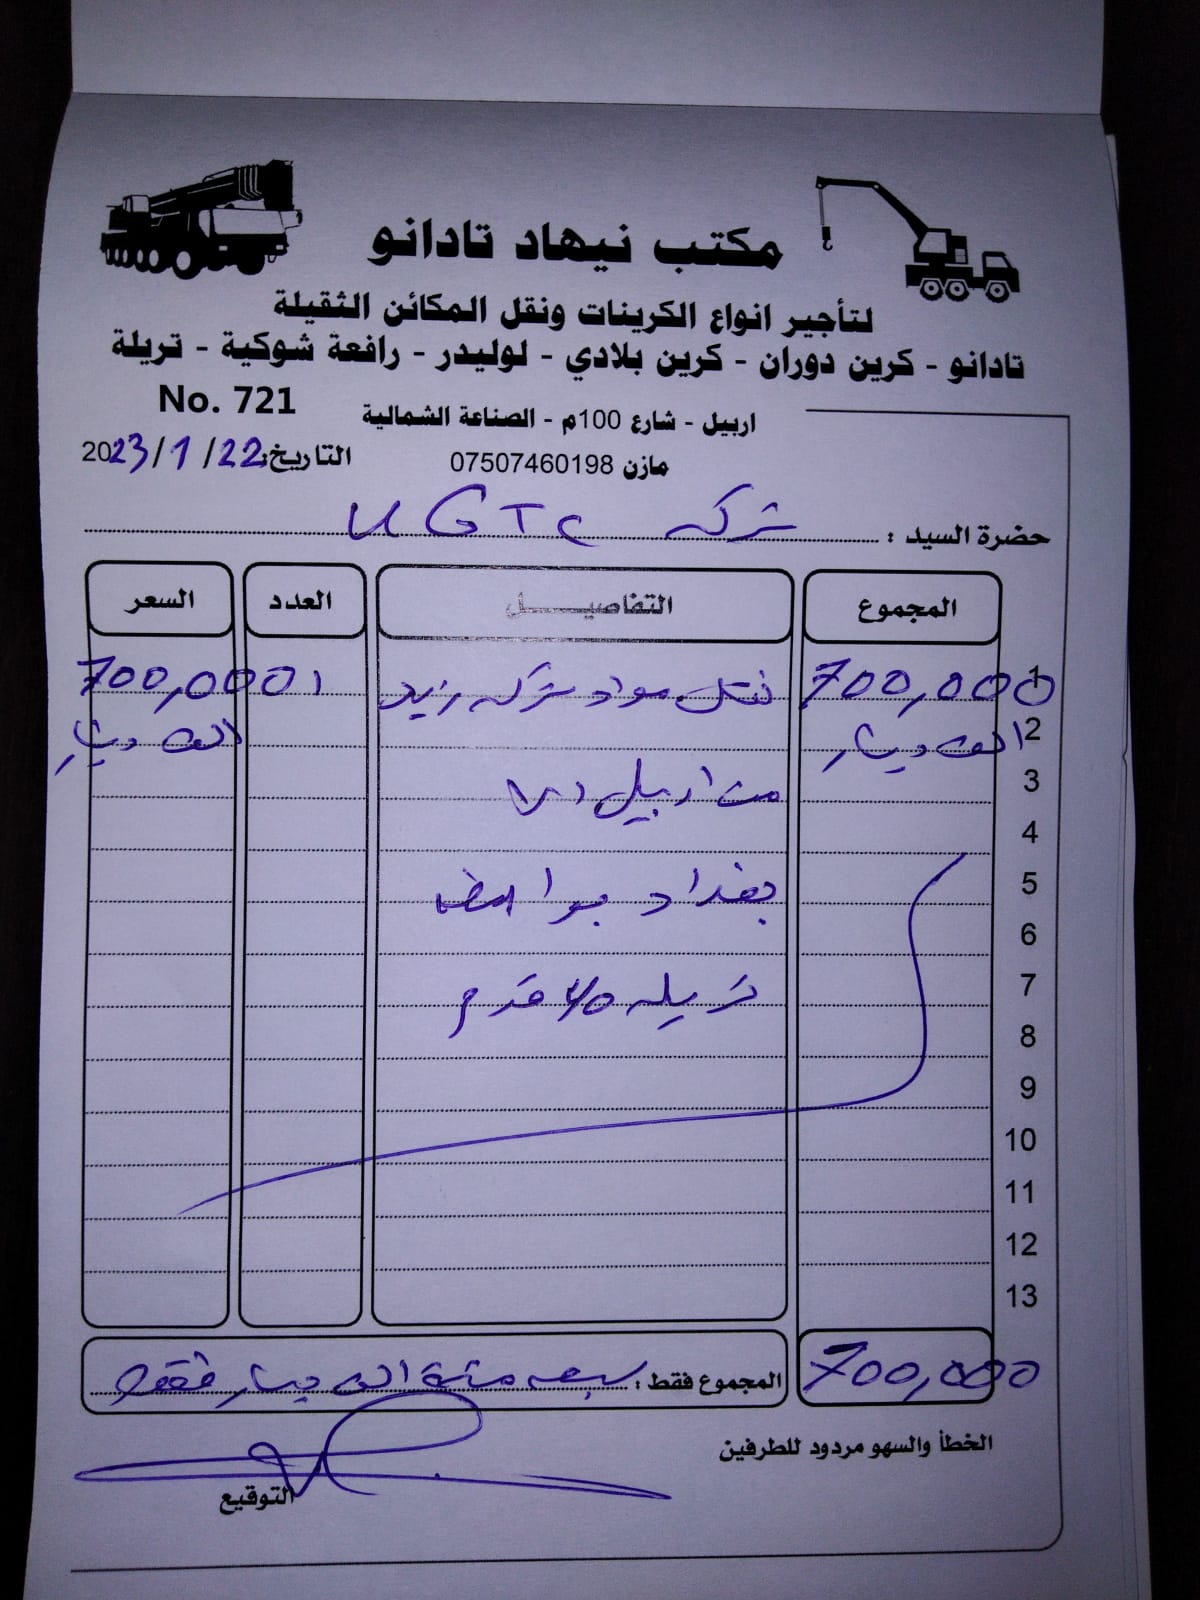 مكتب نيهاد تادانو
لتأجير انواع الكرينات ونقل المكائن الثقيلة
تادانو - كرين دوران - كرين بلادي - لوليدر - رافعة شوكية - تريلة
No. 721
اربيل - شارع 100م - الصناعة الشمالية
التاريخ: 22/1/2023
مازن 07507460198
حضرة السيد : شركه UGTC
المجموع التفاصيل العدد السعر
1 700,000 نقل مواد شركه زيد 1 700,000
2 الف دينار الف دينار
3 من اربيل الى
4
5 بغداد
6
7 تريله 40 قدم
8
9
10
11
12
13
700,000 المجموع فقط : سبعه مئة الف دينار فقط
الخطأ والسهو مردود للطرفين
التوقيع